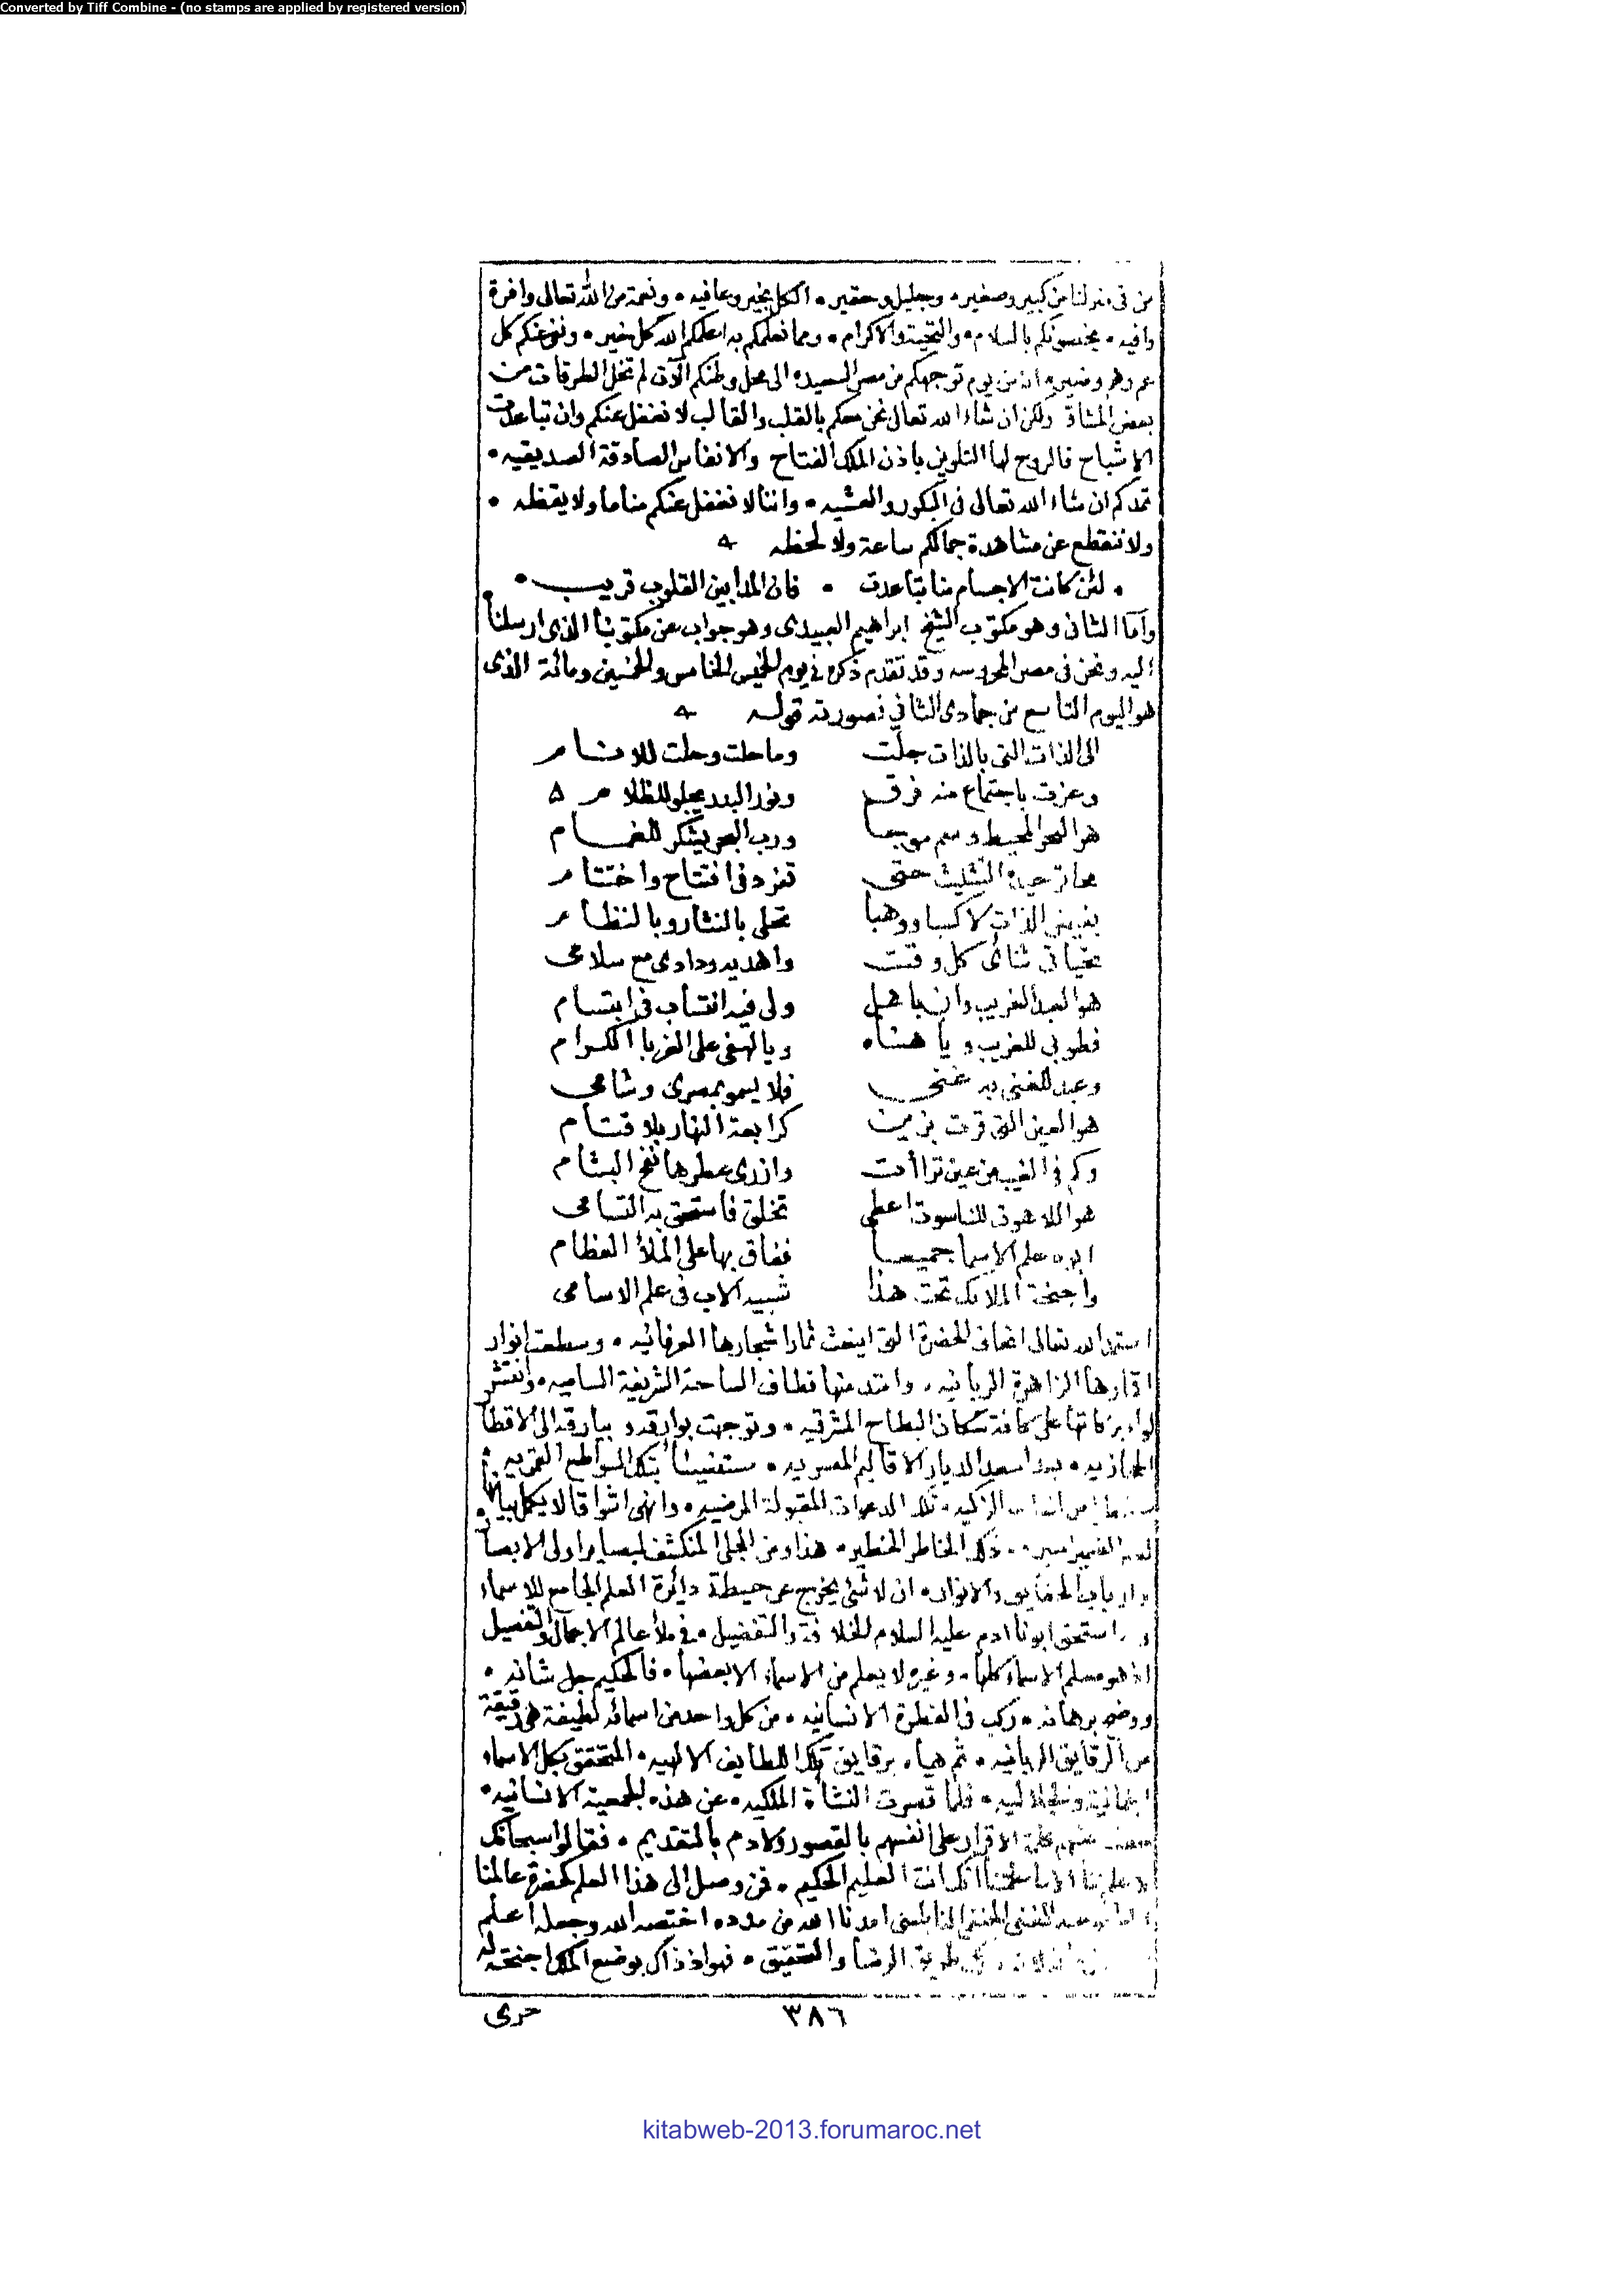 Converted by Tiff Combine - (no stamps are applied by registered version)
من في منزلنا من كبير وصغير • وجليل وحقير • الكل بخير وعافيه • ونعمة من الله تعالى وافرة
وافيه • يخصونكم بالسلام • والتحية والاكرام • ومما نعلمكم به اعلمكم الله كل خير • ونفى عنكم كل
من يوم توجهكم من مصر السعيده الى محل وطنكم الآن لم تخل الطرقات من
بعض المشاق ولكن ان شاء الله تعالى نحن معكم بالقلب والقالب لا نغفل عنكم وان تباعدت
الاشباح فالروح لها التلوين باذن الملك الفتاح والانفاس الصادقة الصديقيه •
تمدكم ان شاء الله تعالى في البكور والعشيه • واننا لا نغفل عنكم مناما ولا يقظه •
ولا ننقطع عن مشاهدة جمالكم ساعة ولا لحظه
• لئن كانت الاجسام منا تباعدت • فان المدا بين القلوب قريب •
وأما الثاني وهو مكتوب الشيخ ابراهيم العبيدى وهو جواب عن مكتوبنا الذى ارسلنا
اليه ونحن في مصر المحروسه وقد تقدم ذكره في يوم الخميس الخامس والخمسين ومائة الذى
هو اليوم التاسع من جمادى الثاني فصورته قوله
الى الذات التى بالذات جلت وما حلت وحلت للانام
وعزت باجتماع منه فرق ونور البدر يجلو للظلام
هو البحر المحيط وسم موجا ورب البحر يشكر للغمام
التثليث حتى تفرد في افتتاح واختتام
بفيض الذات لا كسبا ووهبا تحلى بالنثار وبالنظام
ثنائى كل وقت واهديه ودادى مع سلامى
هو العبد الغريب وان ولى فيه انتساب في ابتسام
فطوبى للغريب ويا هناه ويا لهفى على الغربا الكرام
وعبد للغنى به غنى فلا يسمو بمصرى وشامى
هو العين التى قرت بزين كرابعة النهار بلا قتام
وكم في الغيب من عين تراأت وازرى عطرها نفح البشام
هو اللاهوت للناسوت اعطى تخلق فاستحق به التسامى
ابوه علم الاسما جميعا ففاق بها على الملأ العظام
وأجنحة الملائك تحت هذا شبيه الاب في علم الاسامى
تعالى الحضرة التى اينعت ثمار اشجارها العرفانيه • وسطعت انوار
اقمارها الزاهرة الربانيه • وامتد منها قطاف الساحة الشريفة الساميه • وانتشر
لواء بركاتها على كافة سكان البطاح المشرقيه • وتوجهت بوارقه وبيارقه الى الاقطا
الحجازيه • الديار الاقاليم المصريه • مستضيئا بتلك السواطع القمريه
الزكيه • تلك الدعوات المقبولة المرضيه • وانهى اشواقا لا يكمل
ذكر الخاطر الخطير • هذا ومن الجلى المنكشف لبصاير اولى الابصا
وارباب الحقايق والانوار • ان لا شئ يخرج عن حيطة دائرة العلم الجامع للاسماء
استحق ابونا ادم عليه السلام الخلافة والتفضيل • في ملأ عالم الاجمال والتفصيل
اذ هو معلم الاسماء كلها • وغيره لا يعلم من الاسماء الا بعضها • فالحكيم جل شانه •
ووضح برهانه • ركب في الفطرة الانسانيه • من كل واحد من اسمائه لطيفة هى رقيقة
من الرقايق الربانيه • ثم هيأه برقايق تلك اللطايف الالهيه • المتحقق بكل الاسماء
الجمالية والجلاليه • فلما قصرت النشأة الملكيه • عن هذه الجمعية الانسانيه •
الاقرار على انفسهم بالقصور ولادم بالتقديم • فقالوا سبحانك
لا علم لنا الا ما علمتنا انك انت العليم الحكيم • فمن وصل الى هذا العلم كحضرة عالمنا
عبد الغنى الحنفى النابلسى امدنا الله من مدده اختصه الله وجعله اعلم
طريق الرضا والتحقيق • فهو اذ ذاك بوضع الملك اجنحته له
حرى
٣٨٦
kitabweb-2013.forumaroc.net